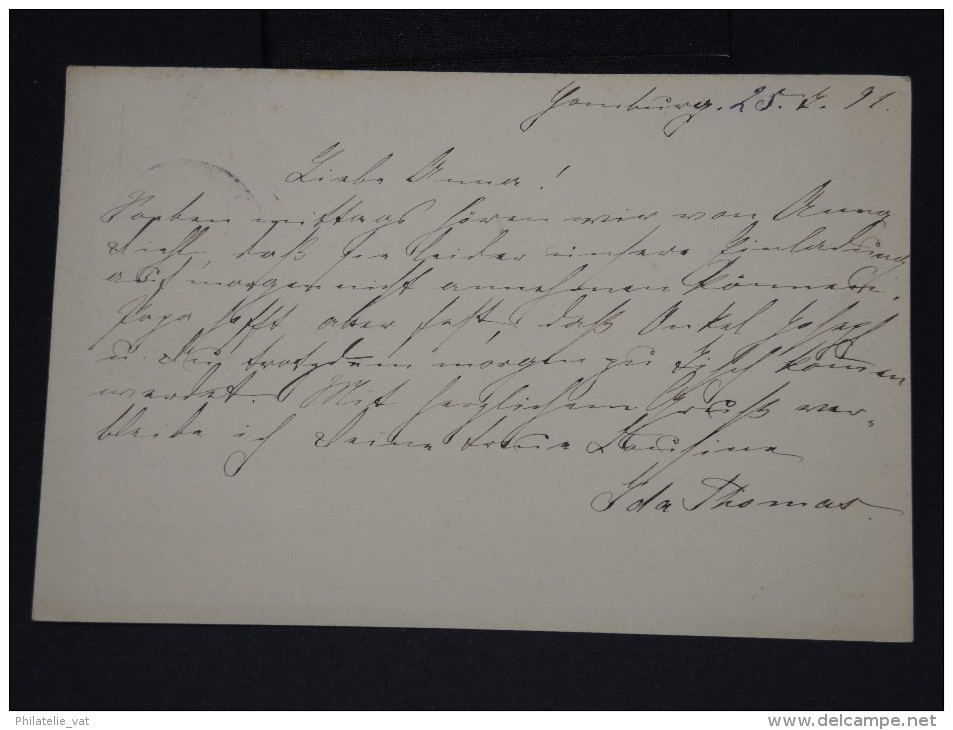 Homburg. 25. 7. 91.
Liebe Anna!
Soeben mittags hören wir von Anna
daß sie leider unsere Einladung
auf morgen nicht annehmen können.
Papa hofft aber fest, daß Onkel Joseph
u. Du trotzdem morgen zu Tisch kommen
werdet. Mit herzlichem Gruß ver=
bleibe ich Deine treue Cousine
Ida Thomas.
Philatelie_vat
www.delcampe.net